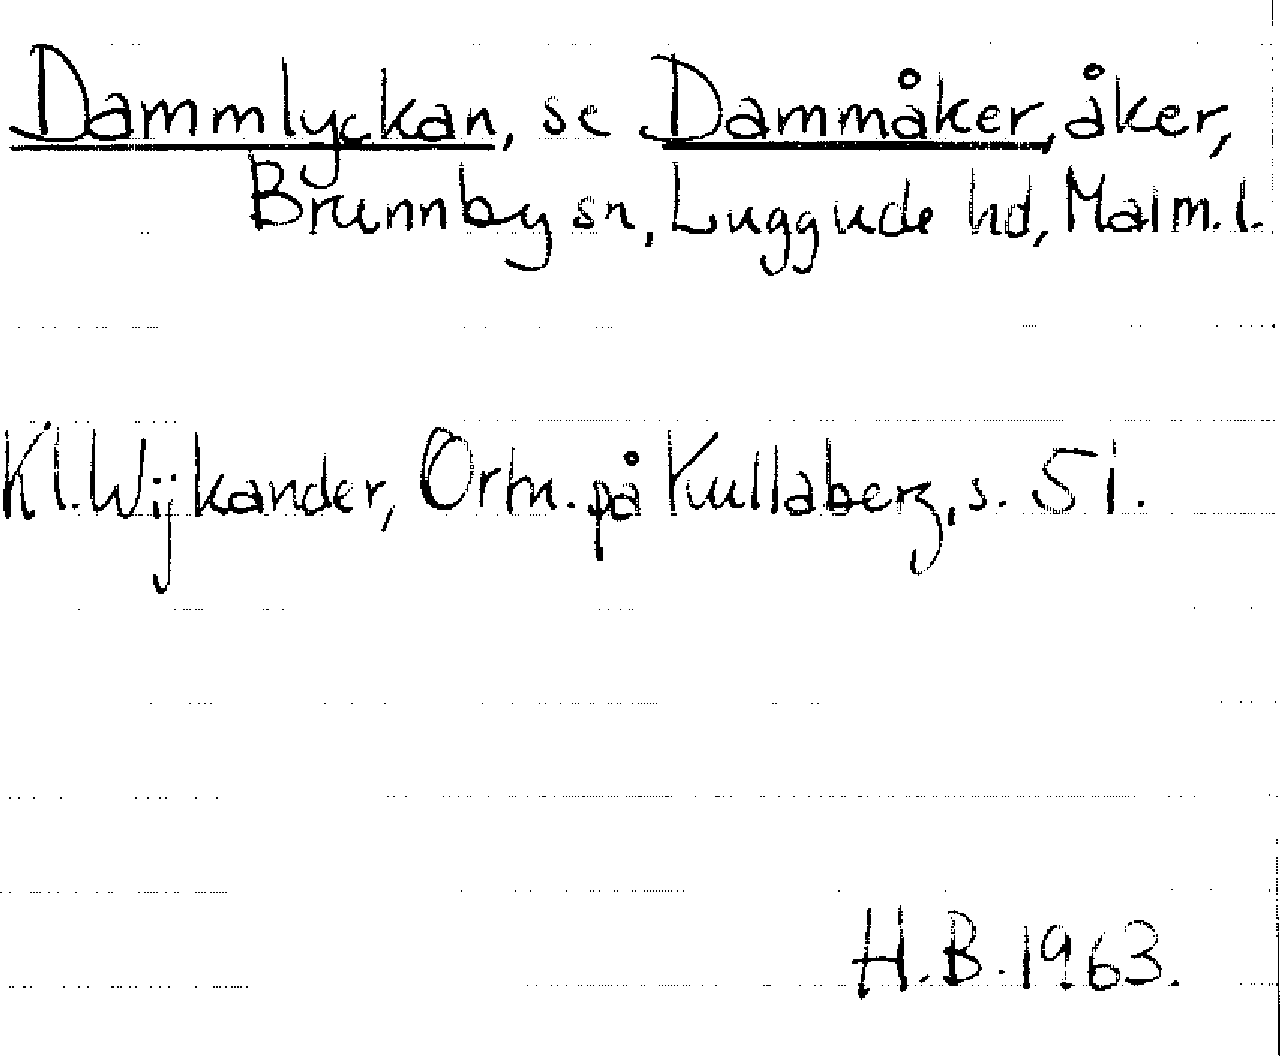 Dammlyckan, se Dammåker, åker,
Brunnby sn, Luggude hd, Malm. l.
Kl. Wijkander, Ortn. på Kullaberg, s. 51.
H.B. 1963.